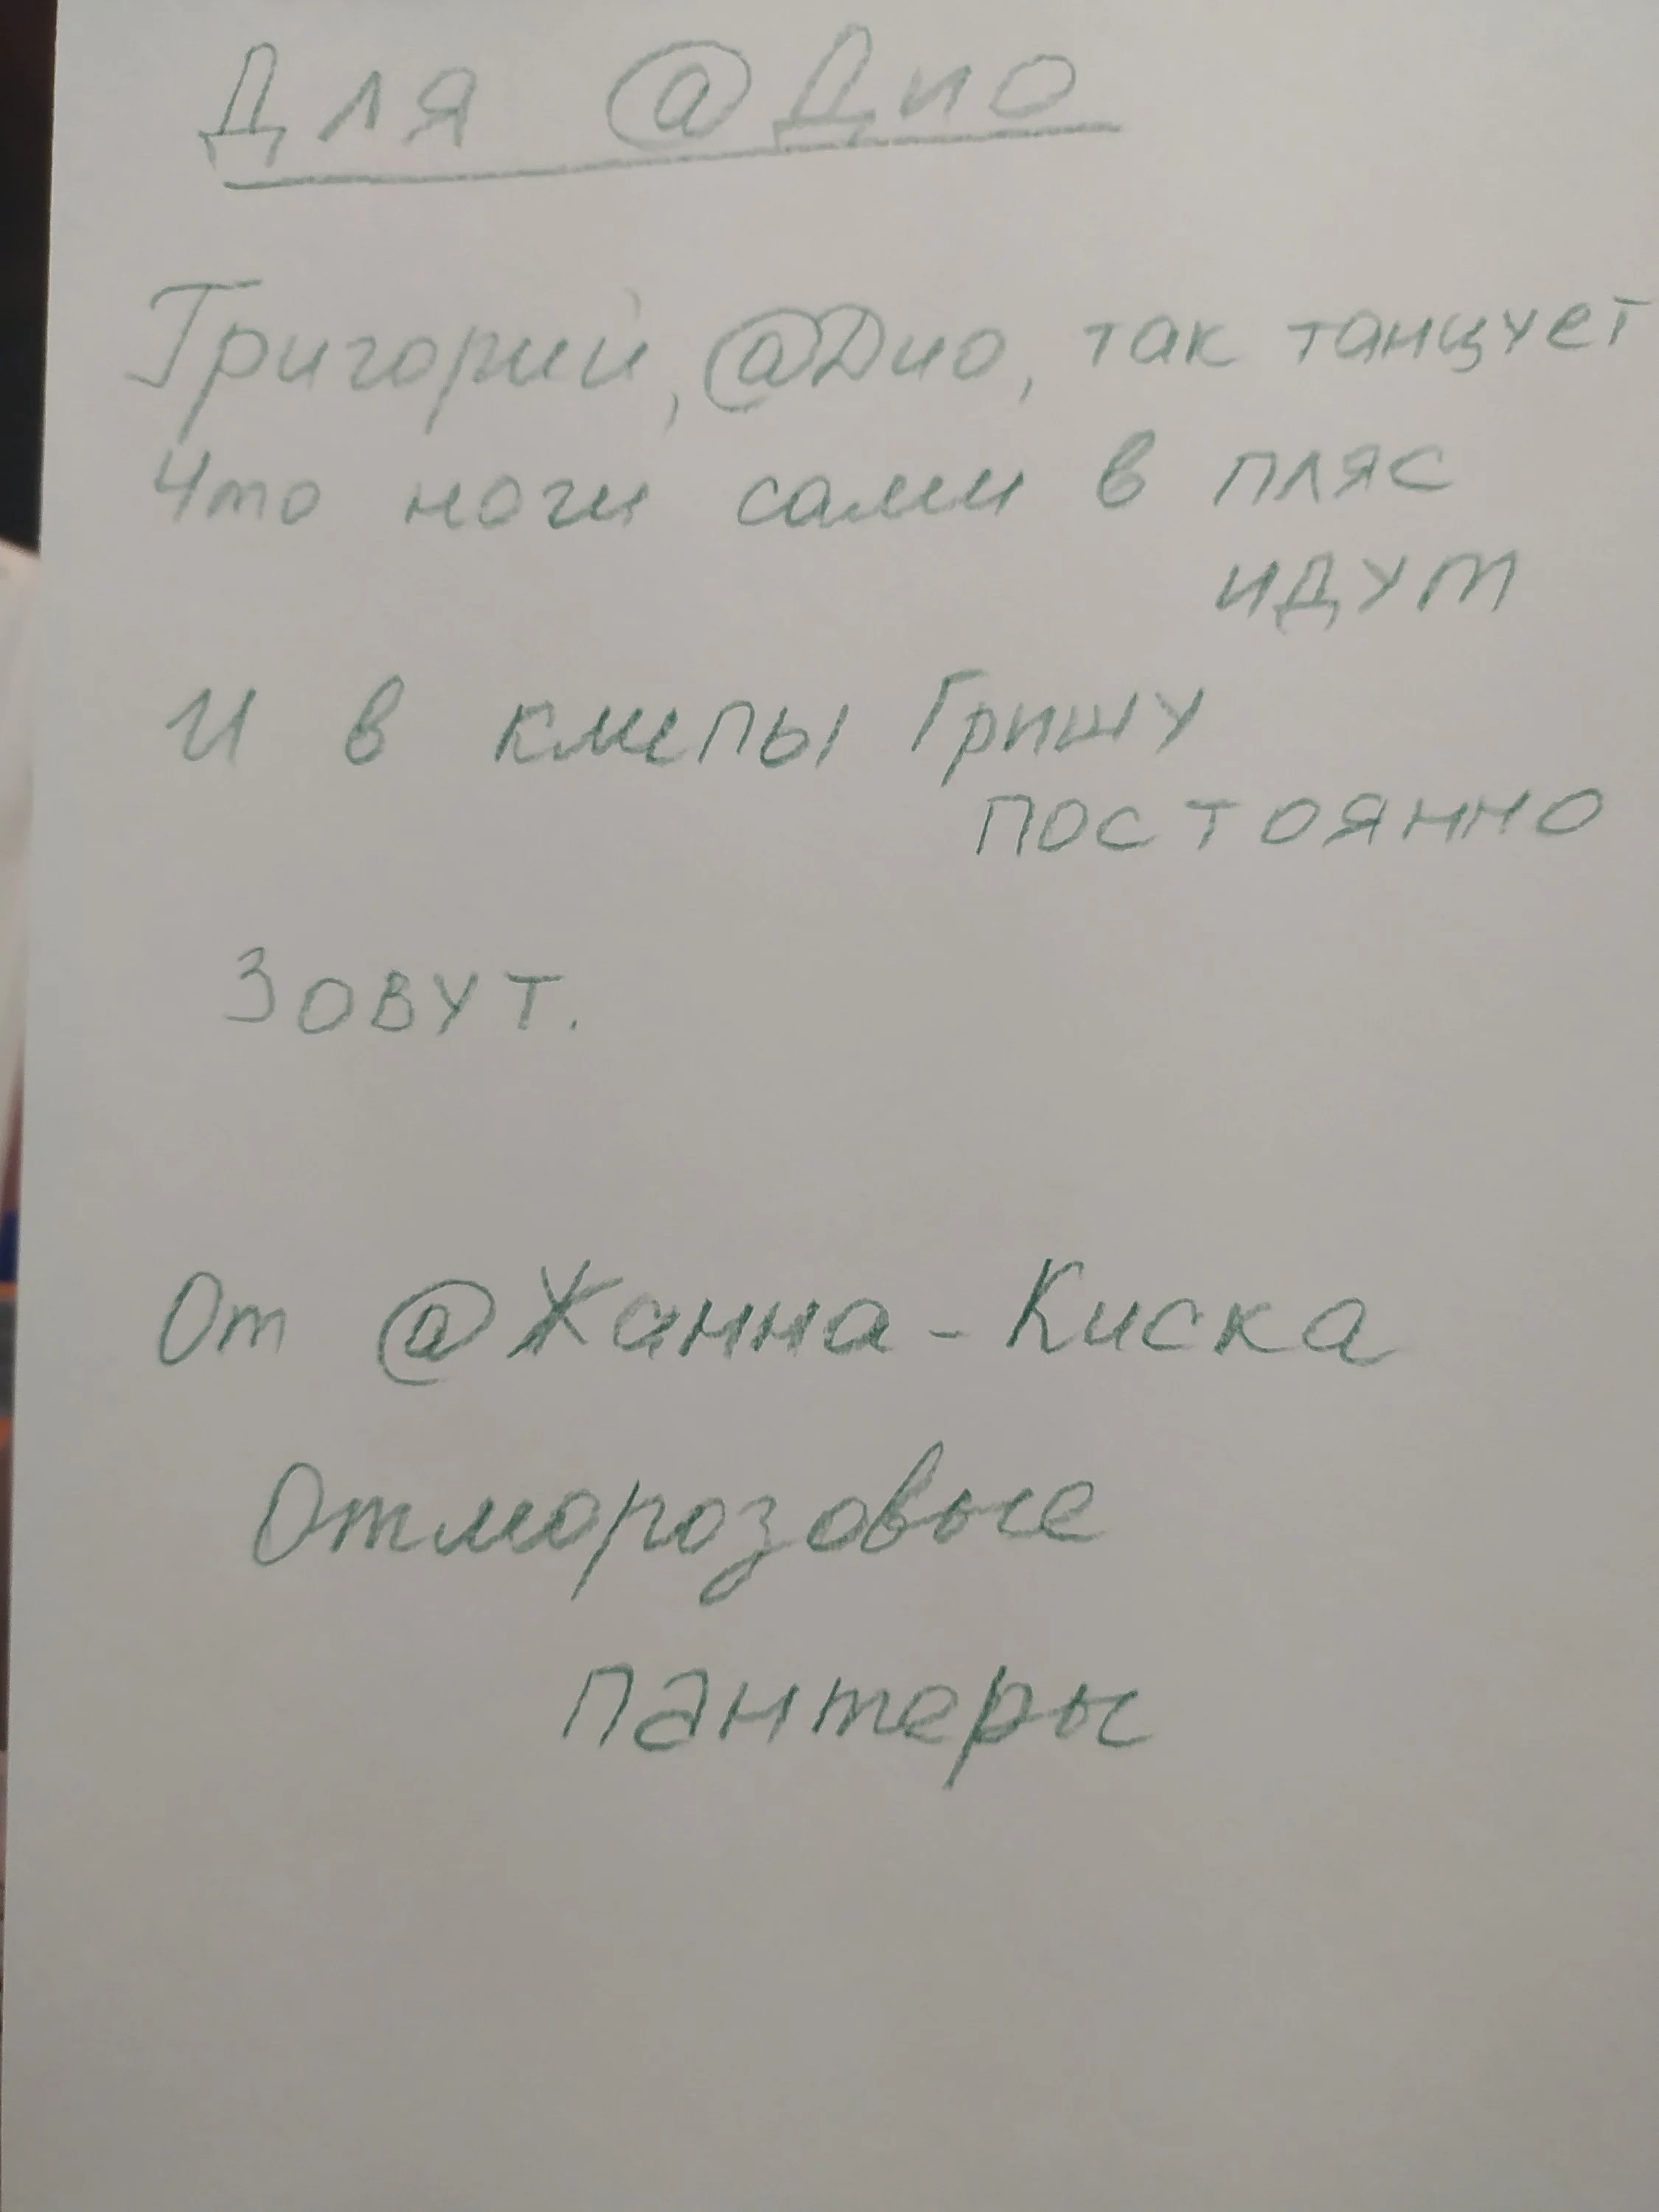 Для @Дио
Григорий, @Дио, так танцует
Что ноги сами в пляс
идут
И в клипы Гришу
постоянно
Зовут.
От @Жанна-Киска
Отморозовые
пантеры